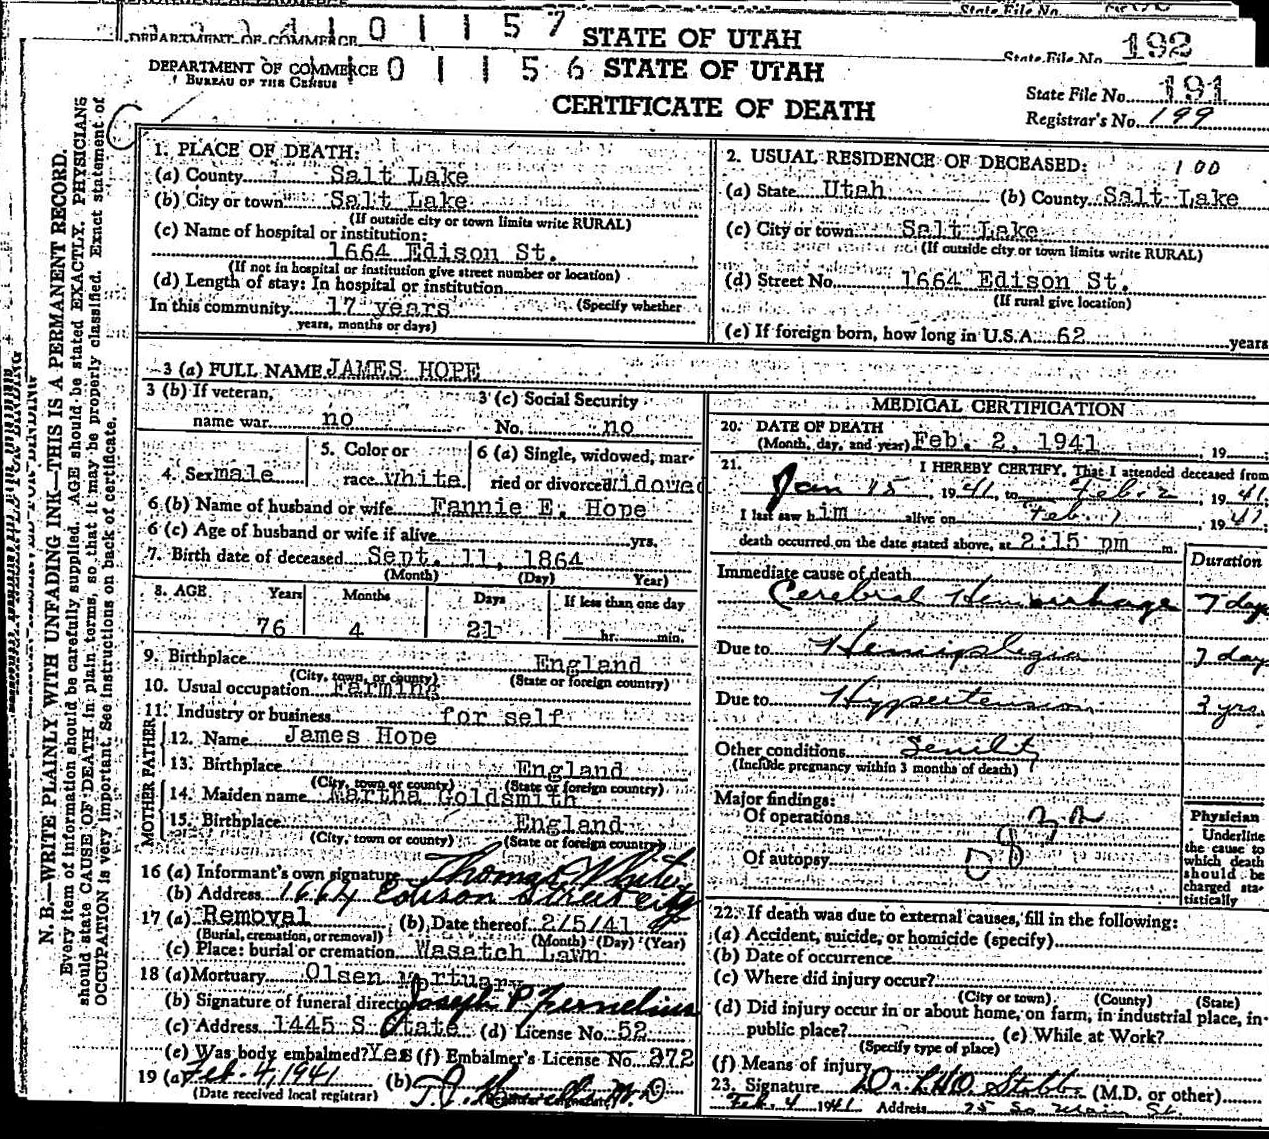 State File No.
0 1 1 5 7 STATE OF UTAH
DEPARTMENT OF COMMERCE
State File No. 192
DEPARTMENT OF COMMERCE
BUREAU OF THE CENSUS
0 1 1 5 6 STATE OF UTAH
CERTIFICATE OF DEATH
State File No. 191
Registrar's No. 199
N. B.—WRITE PLAINLY WITH UNFADING INK—THIS IS A PERMANENT RECORD.
Every item of information should be carefully supplied. AGE should be stated EXACTLY. PHYSICIANS
should state CAUSE OF DEATH in plain terms, so that it may be properly classified. Exact statement of
OCCUPATION is very important. See instructions on back of certificate.
1. PLACE OF DEATH:
(a) County Salt Lake
(b) City or town Salt Lake
(If outside city or town limits write RURAL)
(c) Name of hospital or institution:
1664 Edison St.
(If not in hospital or institution give street number or location)
(d) Length of stay: In hospital or institution
In this community 17 years (Specify whether
years, months or days)
2. USUAL RESIDENCE OF DECEASED: 100
(a) State Utah (b) County Salt Lake
(c) City or town Salt Lake
(If outside city or town limits write RURAL)
(d) Street No. 1664 Edison St.
(If rural give location)
(e) If foreign born, how long in U.S.A. 62 years
3 (a) FULL NAME JAMES HOPE
3 (b) If veteran,
name war no
3 (c) Social Security
No. no
4. Sex male
5. Color or
race white
6 (a) Single, widowed, mar-
ried or divorced Widowed
6 (b) Name of husband or wife Fannie E. Hope
6 (c) Age of husband or wife if alive yrs.
7. Birth date of deceased Sept. 11, 1864
(Month) (Day) Year)
8. AGE Years Months Days If less than one day
76 4 21 hr. min.
9. Birthplace England
(City, town, or county) (State or foreign country)
10. Usual occupation Farming
11. Industry or business for self
FATHER
12. Name James Hope
13. Birthplace England
(City, town or county) (State or foreign country)
MOTHER
14. Maiden name Martha Goldsmith
15. Birthplace England
(City, town or county) (State or foreign country)
16 (a) Informant's own signature Thomas White
(b) Address 1664 Edison Street City
17 (a) Removal (b) Date thereof 2/5/41
(Burial, cremation, or removal) (Month) (Day) (Year)
(c) Place: burial or cremation Wasatch Lawn
18 (a) Mortuary Olsen Mortuary
(b) Signature of funeral director Joseph P. Fernelius
(c) Address 1445 S State (d) License No. 52
(e) Was body embalmed? Yes (f) Embalmer's License No. 372
19 (a) Feb. 4, 1941 (b) M.D.
(Date received local registrar)
MEDICAL CERTIFICATION
20. DATE OF DEATH
(Month, day, and year) Feb. 2, 1941 19
21. I HEREBY CERTIFY, That I attended deceased from
Jan 15, 1941, to Feb 2, 1941.
I last saw him alive on Feb 1, 1941,
death occurred on the date stated above, at 2:15 pm m.
Duration
Immediate cause of death
Cerebral Hemorrhage 7 days
Due to Hemiplegia 7 days
Due to Hypertension 3 yrs.
Other conditions Senility
(Include pregnancy within 3 months of death)
Major findings:
Of operations
Of autopsy
Physician
Underline
the cause to
which death
should be
charged sta-
tistically
22. If death was due to external causes, fill in the following:
(a) Accident, suicide, or homicide (specify)
(b) Date of occurrence
(c) Where did injury occur?
(City or town) (County) (State)
(d) Did injury occur in or about home, on farm, in industrial place, in
public place? (e) While at Work?
(Specify type of place)
(f) Means of injury
23. Signature (M.D. or other)
Feb. 4 1941 Address 75 So Main St.